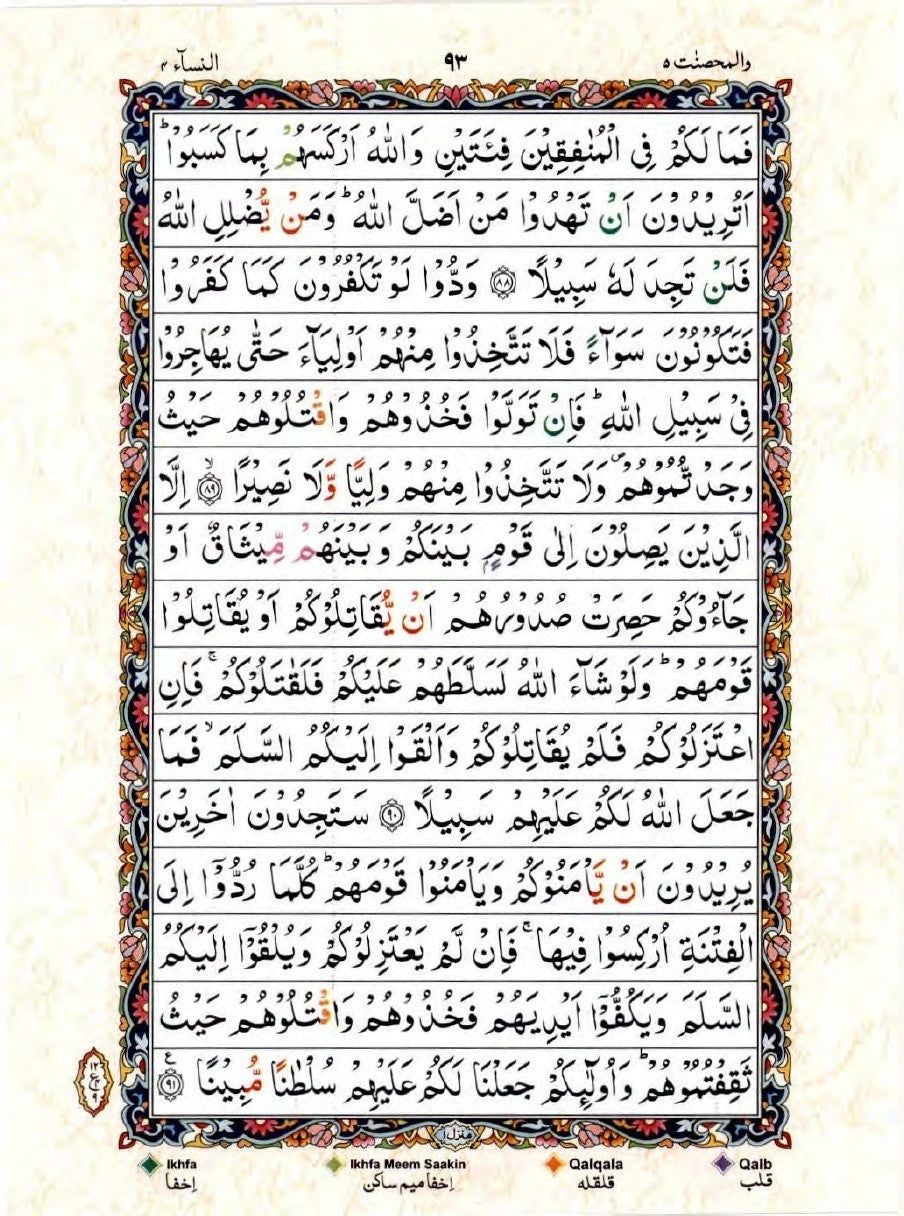 والمحصنٰت ۵ ۹۳ النسآء ۴
فَمَا لَكُمْ فِي الْمُنٰفِقِيْنَ فِئَتَيْنِ وَاللّٰهُ اَرْكَسَهُمْ بِمَا كَسَبُوْا ؕ
اَتُرِيْدُوْنَ اَنْ تَهْدُوْا مَنْ اَضَلَّ اللّٰهُ ؕ وَمَنْ يُّضْلِلِ اللّٰهُ
فَلَنْ تَجِدَ لَهٗ سَبِيْلًا ﴿۸۸﴾ وَدُّوْا لَوْ تَكْفُرُوْنَ كَمَا كَفَرُوْا
فَتَكُوْنُوْنَ سَوَآءً فَلَا تَتَّخِذُوْا مِنْهُمْ اَوْلِيَآءَ حَتّٰى يُهَاجِرُوْا
فِيْ سَبِيْلِ اللّٰهِ ؕ فَاِنْ تَوَلَّوْا فَخُذُوْهُمْ وَاقْتُلُوْهُمْ حَيْثُ
وَجَدْتُّمُوْهُمْ ۪ وَلَا تَتَّخِذُوْا مِنْهُمْ وَلِيًّا وَّلَا نَصِيْرًا ۙ ﴿۸۹﴾ اِلَّا
الَّذِيْنَ يَصِلُوْنَ اِلٰى قَوْمٍۭ بَيْنَكُمْ وَبَيْنَهُمْ مِّيْثَاقٌ اَوْ
جَآءُوْكُمْ حَصِرَتْ صُدُوْرُهُمْ اَنْ يُّقَاتِلُوْكُمْ اَوْ يُقَاتِلُوْا
قَوْمَهُمْ ؕ وَلَوْ شَآءَ اللّٰهُ لَسَلَّطَهُمْ عَلَيْكُمْ فَلَقٰتَلُوْكُمْ ۚ فَاِنِ
اعْتَزَلُوْكُمْ فَلَمْ يُقَاتِلُوْكُمْ وَاَلْقَوْا اِلَيْكُمُ السَّلَمَ ۙ فَمَا
جَعَلَ اللّٰهُ لَكُمْ عَلَيْهِمْ سَبِيْلًا ﴿۹۰﴾ سَتَجِدُوْنَ اٰخَرِيْنَ
يُرِيْدُوْنَ اَنْ يَّاْمَنُوْكُمْ وَيَاْمَنُوْا قَوْمَهُمْ ؕ كُلَّمَا رُدُّوْۤا اِلَى
الْفِتْنَةِ اُرْكِسُوْا فِيْهَا ۚ فَاِنْ لَّمْ يَعْتَزِلُوْكُمْ وَيُلْقُوْۤا اِلَيْكُمُ
السَّلَمَ وَيَكُفُّوْۤا اَيْدِيَهُمْ فَخُذُوْهُمْ وَاقْتُلُوْهُمْ حَيْثُ
ثَقِفْتُمُوْهُمْ ؕ وَاُولٰٓئِكُمْ جَعَلْنَا لَكُمْ عَلَيْهِمْ سُلْطٰنًا مُّبِيْنًا ﴿۹۱﴾ ع
۱۲ ع ۹
منزل ۱
Ikhfa Ikhfa Meem Saakin Qalqala Qalb
إخفا إخفا ميم ساكن قلقله قلب